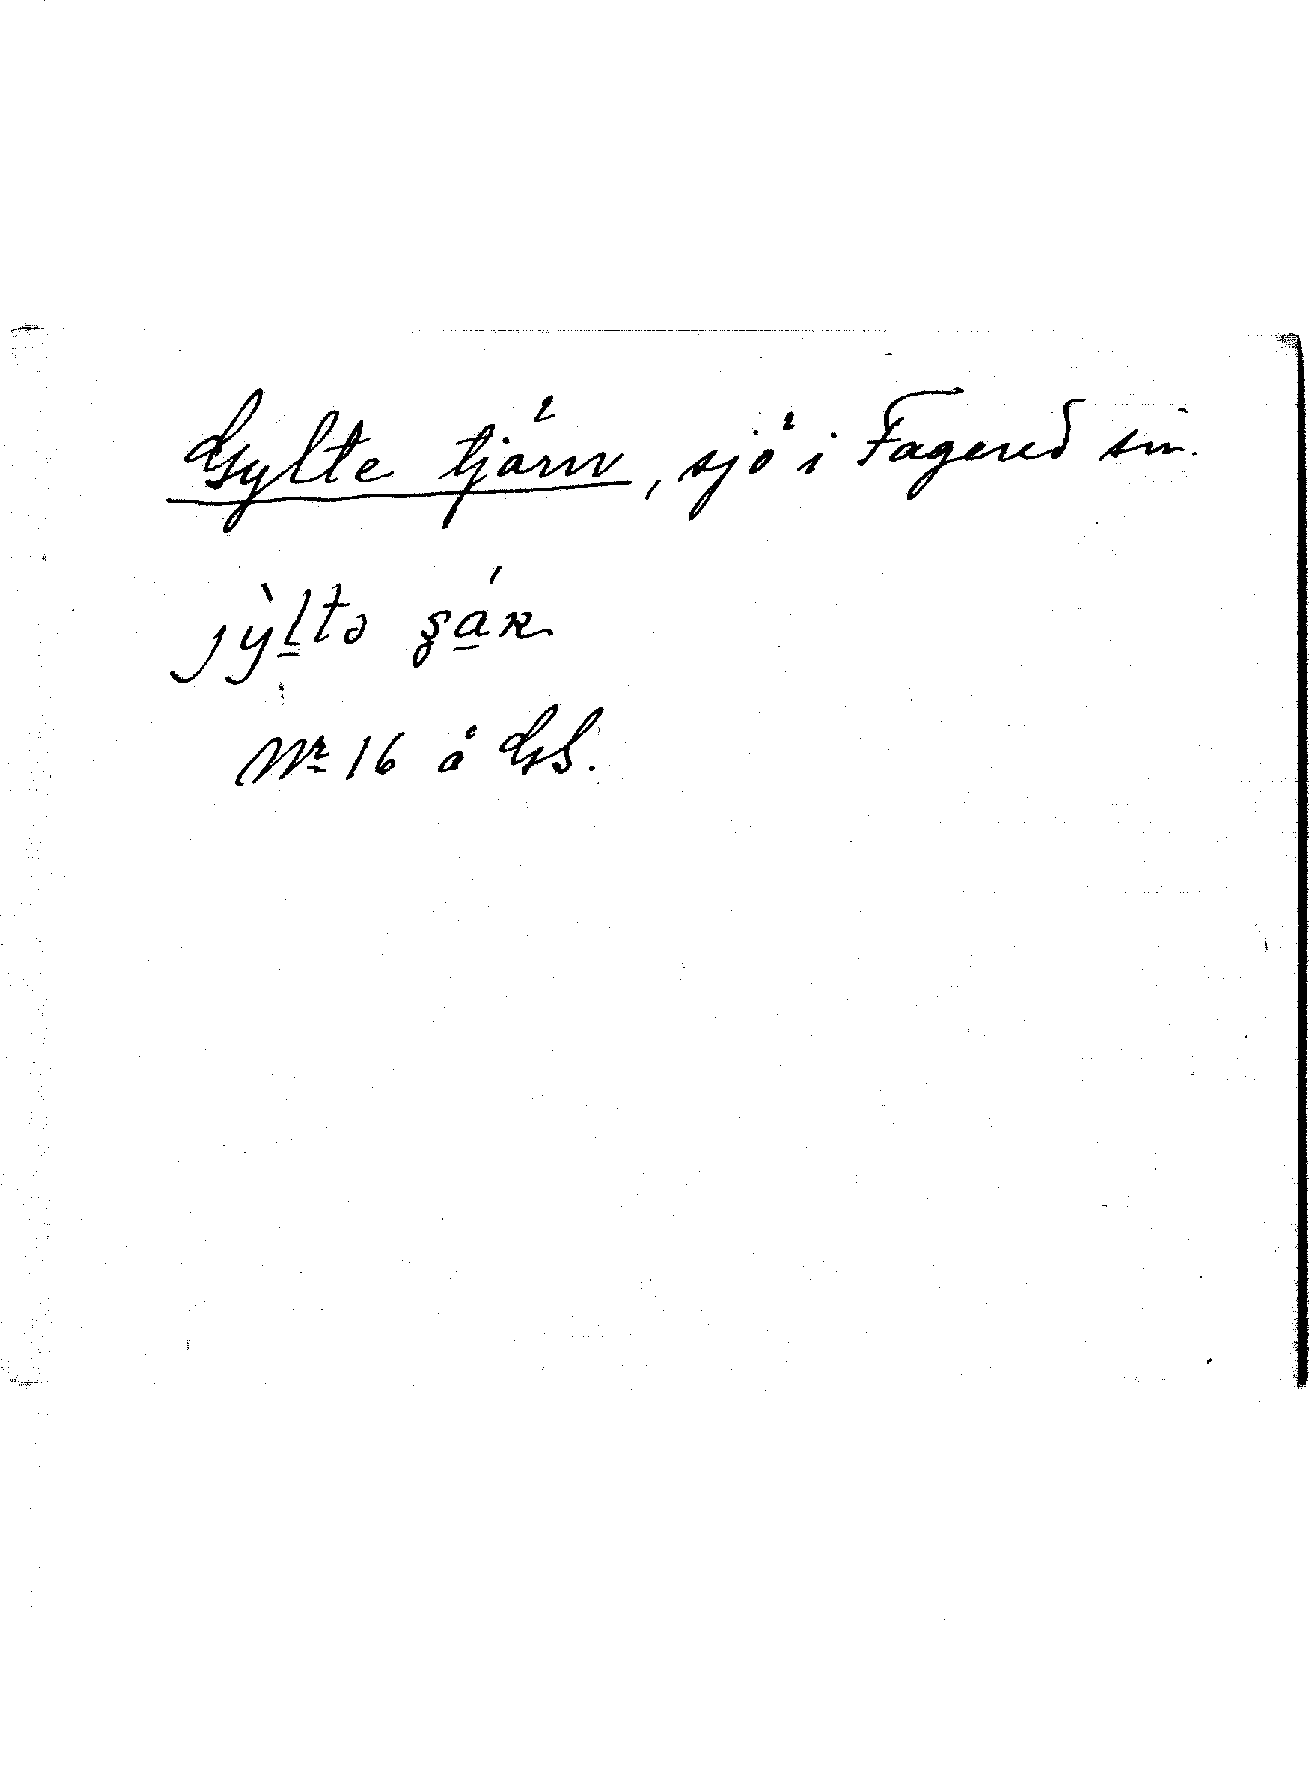 Gylte tjärn, sjö i Fagered sn.
jỳl̲tə
Nr 16 å GS.